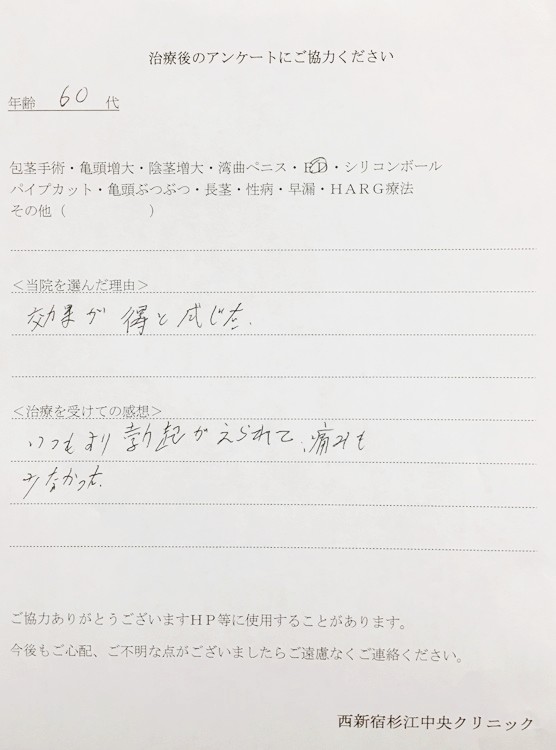 治療後のアンケートにご協力ください
年齢 60 代
包茎手術・亀頭増大・陰茎増大・湾曲ペニス・ED・シリコンボール
パイプカット・亀頭ぶつぶつ・長茎・性病・早漏・HARG療法
その他（ ）
＜当院を選んだ理由＞
効果が得と感じた.
＜治療を受けての感想＞
いつもより勃起がえられて、痛みも
少なかった.
ご協力ありがとうございますHP等に使用することがあります。
今後もご心配、ご不明な点がございましたらご遠慮なくご連絡ください。
西新宿杉江中央クリニック